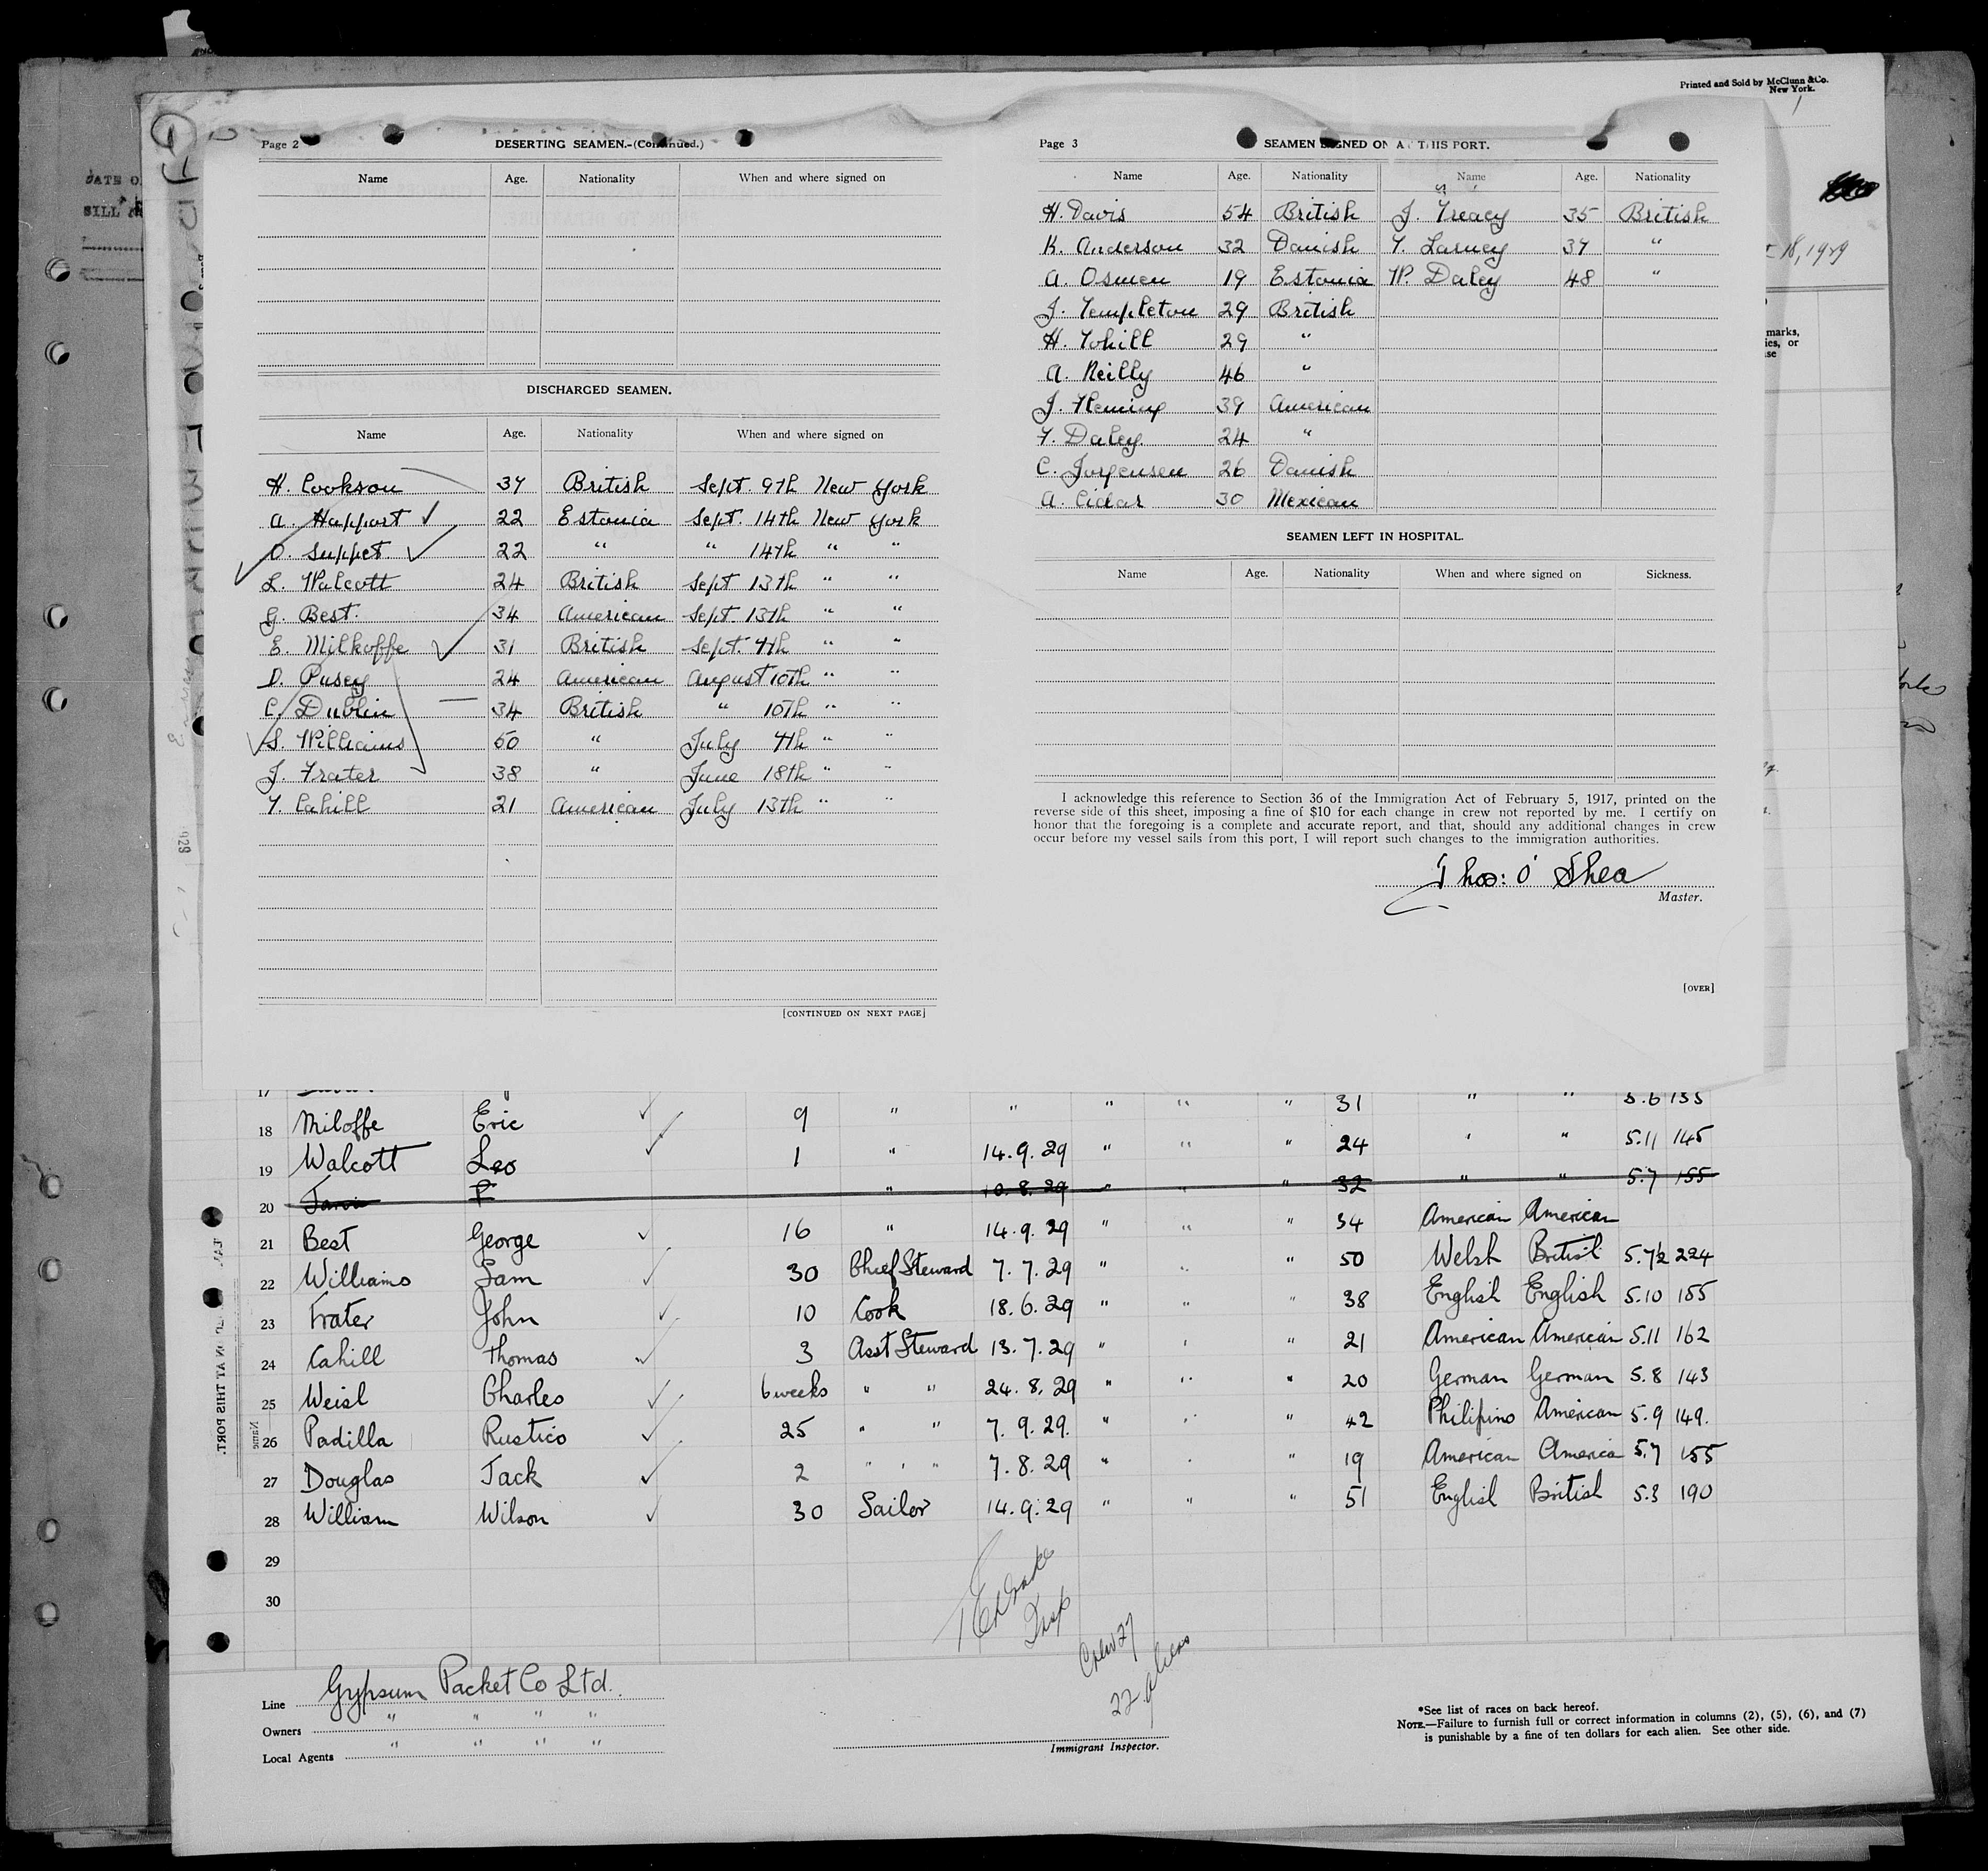 Printed and Sold by McClunn & Co.
New York.
DATE O
BILL
18, 1929
marks,
ies, or
se
Page 2
DESERTING SEAMEN.-(Continued.)
Name Age. Nationality When and where signed on
DISCHARGED SEAMEN.
Name Age. Nationality When and where signed on
H. Cookson 37 British Sept. 9th New York
A. Happort 22 Estonia Sept. 14th New York
O. Suppet 22 " " 14th " "
L. Walcott 24 British Sept 13th " "
G. Best. 34 American Sept. 13th " "
E. Milkoffe 31 British Sept. 7th " "
D. Pusey 24 American August 10th " "
C. Dublin 34 British " 10th " "
S. Williams 50 " July 7th " "
J. Frater 38 " June 18th " "
T. Cahill 21 American July 13th " "
[CONTINUED ON NEXT PAGE]
Page 3
SEAMEN SIGNED ON AT THIS PORT.
Name Age. Nationality Name Age. Nationality
H. Davis 54 British J. Treacy 35 British
K. Anderson 32 Danish T. Larney 37 "
A. Osmen 19 Estonia W. Daley 48 "
J. Templeton 29 British
H. Tohill 29 "
A. Reilly 46 "
J. Fleming 39 American
T. Daley. 24 "
C. Jorgensen 26 Danish
A. Cidar 30 Mexican
SEAMEN LEFT IN HOSPITAL.
Name Age. Nationality When and where signed on Sickness.
I acknowledge this reference to Section 36 of the Immigration Act of February 5, 1917, printed on the
reverse side of this sheet, imposing a fine of $10 for each change in crew not reported by me. I certify on
honor that the foregoing is a complete and accurate report, and that, should any additional changes in crew
occur before my vessel sails from this port, I will report such changes to the immigration authorities.
Thos: O'Shea
Master.
[OVER]
17 " " " " " " 31 " " 5.6 135
18 Miloffe Eric 9 "
19 Walcott Leo 1 " 14.9.29 " " " 24 " " 5.11 145
20 Jarvi P " 10.8.29 " " " 32 " " 5.7 155
21 Best George 16 " 14.9.29 " " " 34 American American
22 Williams Sam 30 Chief Steward 7.7.29 " " " 50 Welsh British 5.7½ 224
23 Frater John 10 Cook 18.6.29 " " " 38 English English 5.10 155
24 Cahill Thomas 3 Asst Steward 13.7.29 " " " 21 American American 5.11 162
25 Weisl Charles 6 weeks " " 24.8.29 " " " 20 German German 5.8 143
26 Padilla Rustico 25 " " 7.9.29. " " " 42 Philipino American 5.9 149.
27 Douglas Jack 2 " " " 7.8.29 " " " 19 American America 5.7 155
28 William Wilson 30 Sailor 14.9.29 " " " 51 English British 5.3 190
29
30
Insp
Crew 27
22 aliens
Line Gypsum Packet Co Ltd.
Owners " " " "
Local Agents " " " "
Immigrant Inspector.
*See list of races on back hereof.
NOTE.—Failure to furnish full or correct information in columns (2), (5), (6), and (7)
is punishable by a fine of ten dollars for each alien. See other side.